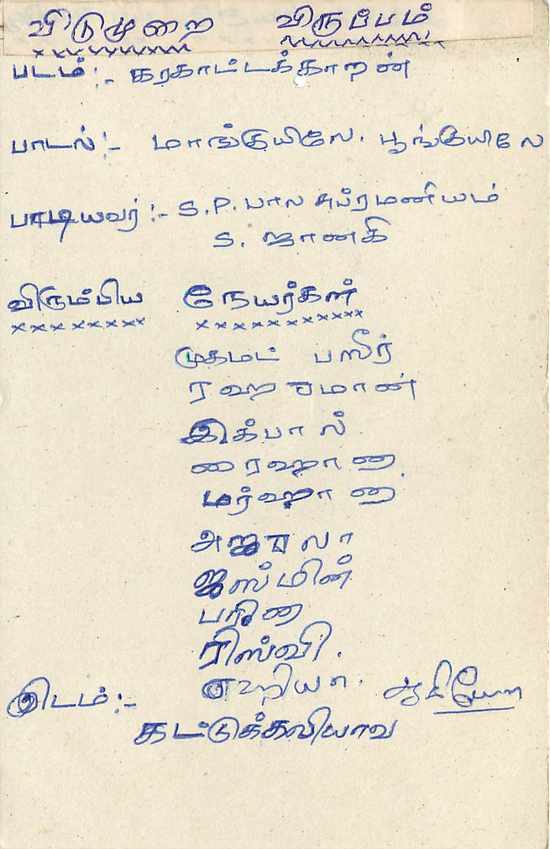 விடுமுறை விருப்பம்
படம்:- கரகாட்டக்காறன்
பாடல்:- மாங்குயிலே. பூங்குயிலே
பாடியவர்:- S.P. பால சுப்ரமணியம்
S. ஜானகி
விரும்பிய நேயர்கள்
முகமட் பஸீர்
ரஹுமான்
இக்பால்
ரைஹானா
மர்ஹானா
அஜுலா
ஜஸ்மின்
பரினா
ரிஸ்வி.
ஆகியோர
இடம்:-
கட்டுக்கலியாவ